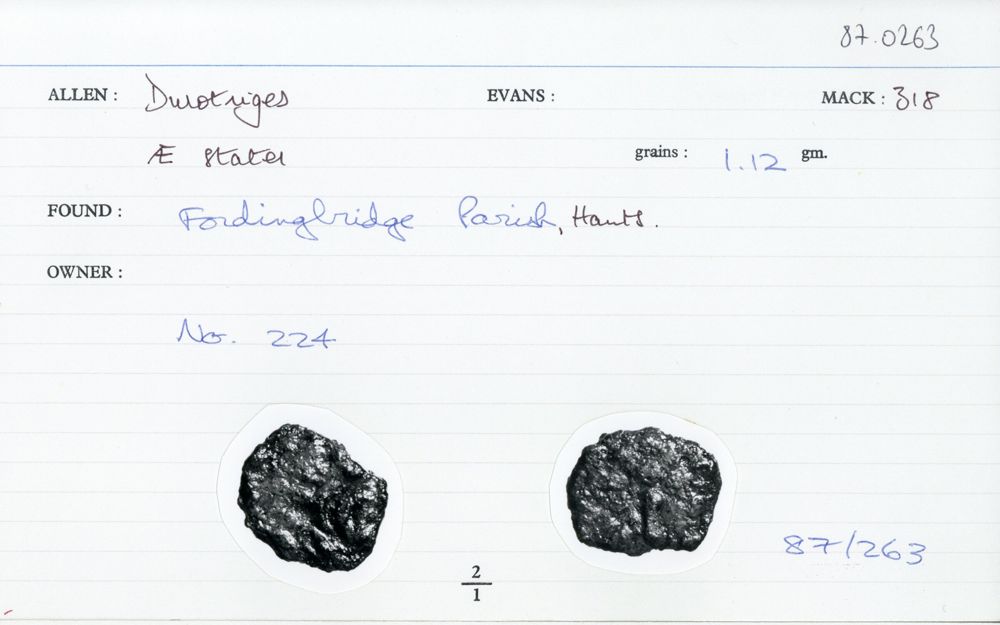 87.0263
ALLEN : Durotriges EVANS : MACK : 318
Æ stater grains : 1.12 gm.
FOUND : Fordingbridge Parish, Hants.
OWNER :
No. 224
87/263
2
1